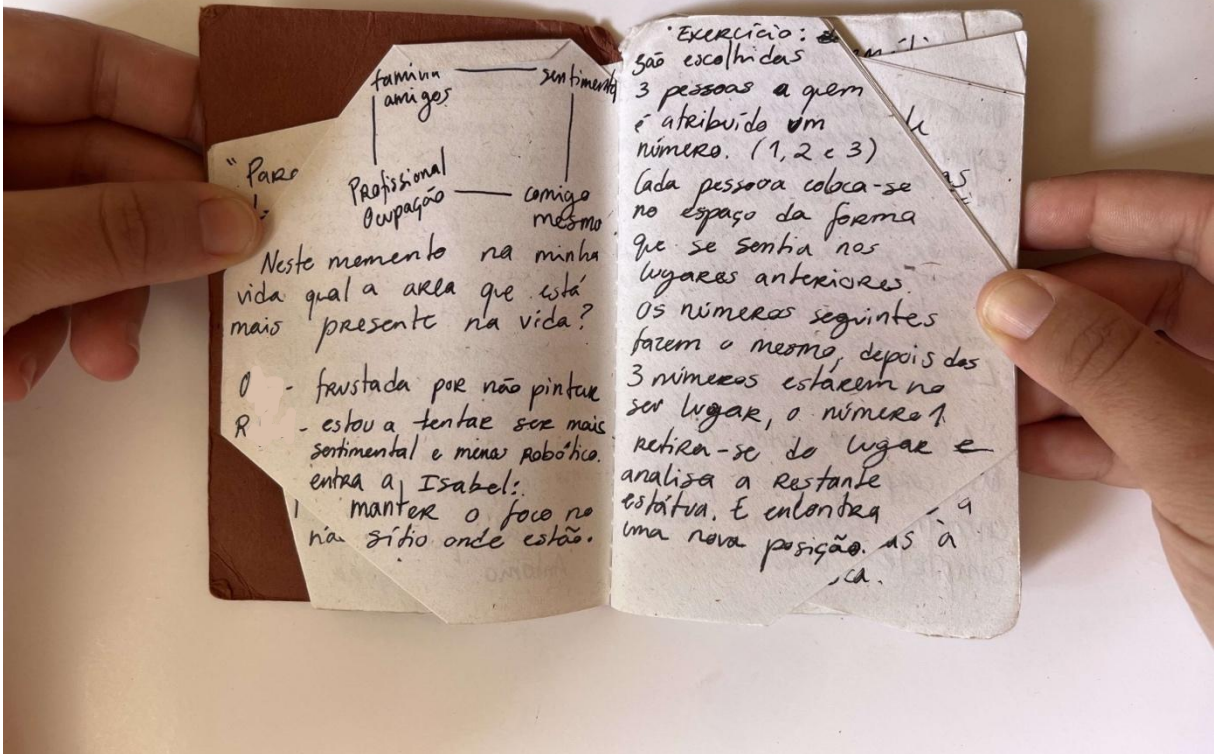 família ——— sentimento
amigos
"Para
Profissional ——— comigo
Ocupação mesmo
Neste memento na minha
vida qual a area que está
mais presente na vida?
O - frustada por não pintar
R - estou a tentar ser mais
sentimental e menos Robótico.
entra a Isabel:
manter o foco no
na sítio onde estão.
Exercício:
São escolhidas
3 pessoas a quem
é atribuído um
número. (1, 2 e 3)
Cada pessoa coloca-se
no espaço da forma
que se sentia nos
lugares anteriores.
Os números seguintes
fazem o mesmo, depois dos
3 números estarem no
seu lugar, o número 1
retira-se do lugar e
analisa a Restante
estátua. E encontra
uma nova posição.
as à